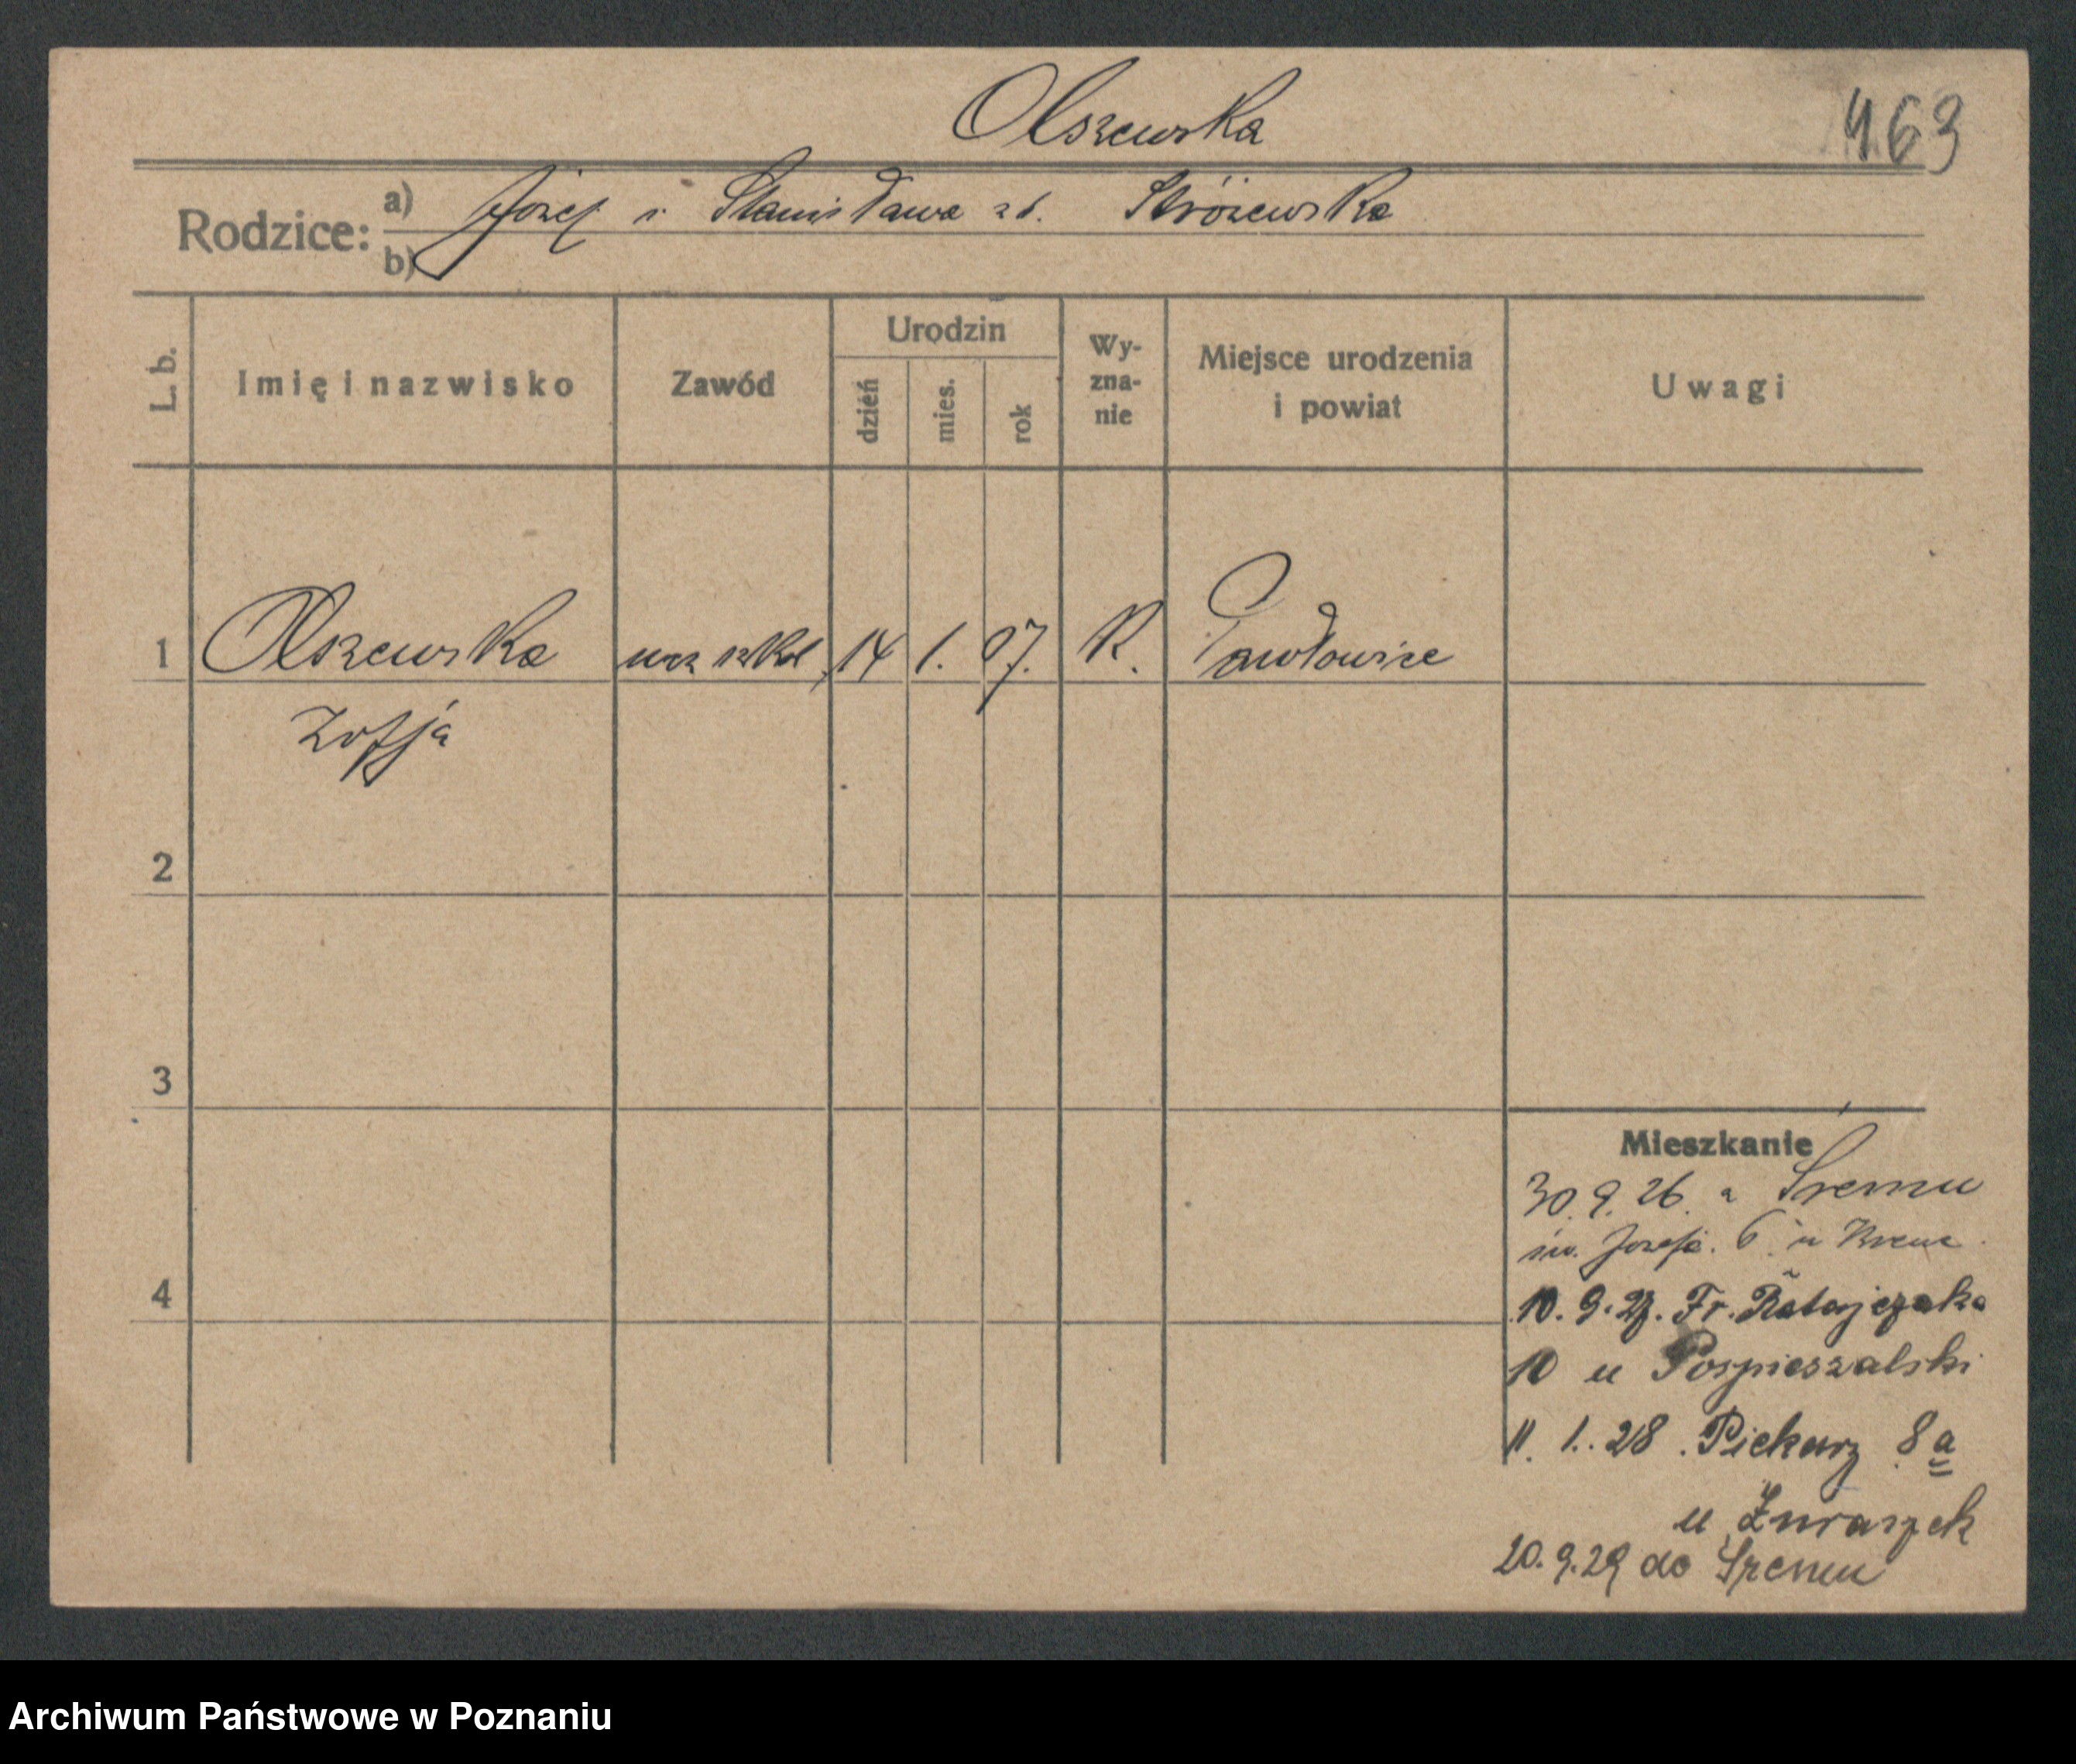 Olszewska
463
Rodzice: a) Józef i Stanisława zd. Stróżewska
b)
L. b. Imię i nazwisko Zawód Urodzin dzień mies. rok Wyznanie Miejsce urodzenia i powiat Uwagi
1 Olszewska ucz szkol 14 1. 07. R. Pawłowice
Zofja
2
3
4
Mieszkanie
30.9.26. z Śremu
św. Józefa. 6 u
10. 9. 27. Fr. Ratajczaka
10 u Pospieszalski
11. 1. 28. Piekarz 8a
u Żuraszek
20.9.29 do Śremu
Archiwum Państwowe w Poznaniu